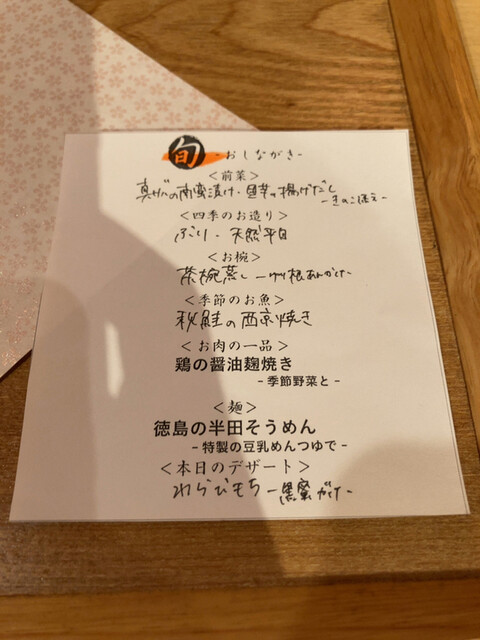 旬 -おしながき-
<前菜>
真だいの南蛮漬け・里芋の揚げだし
-きのこ添え-
<四季のお造り>
ぶり・天然平目
<お椀>
茶椀蒸し -ゆり根あんかけ-
<季節のお魚>
秋鮭の西京焼き
<お肉の一品>
鶏の醤油麹焼き
-季節野菜と-
<麺>
徳島の半田そうめん
-特製の豆乳めんつゆで-
<本日のデザート>
わらびもち -黒蜜がけ-